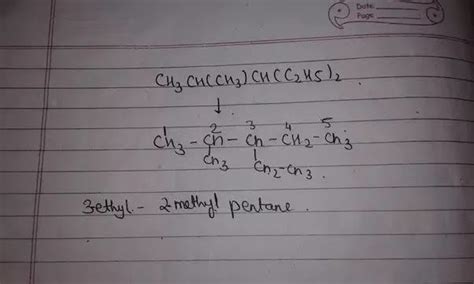 Date:
Page:
CH3CH(CH3)CH(C2H5)2
↓
1 2 3 4 5
CH3 - CH - CH - CH2 - CH3
CH3 CH2-CH3.
3ethyl - 2methyl pentane.